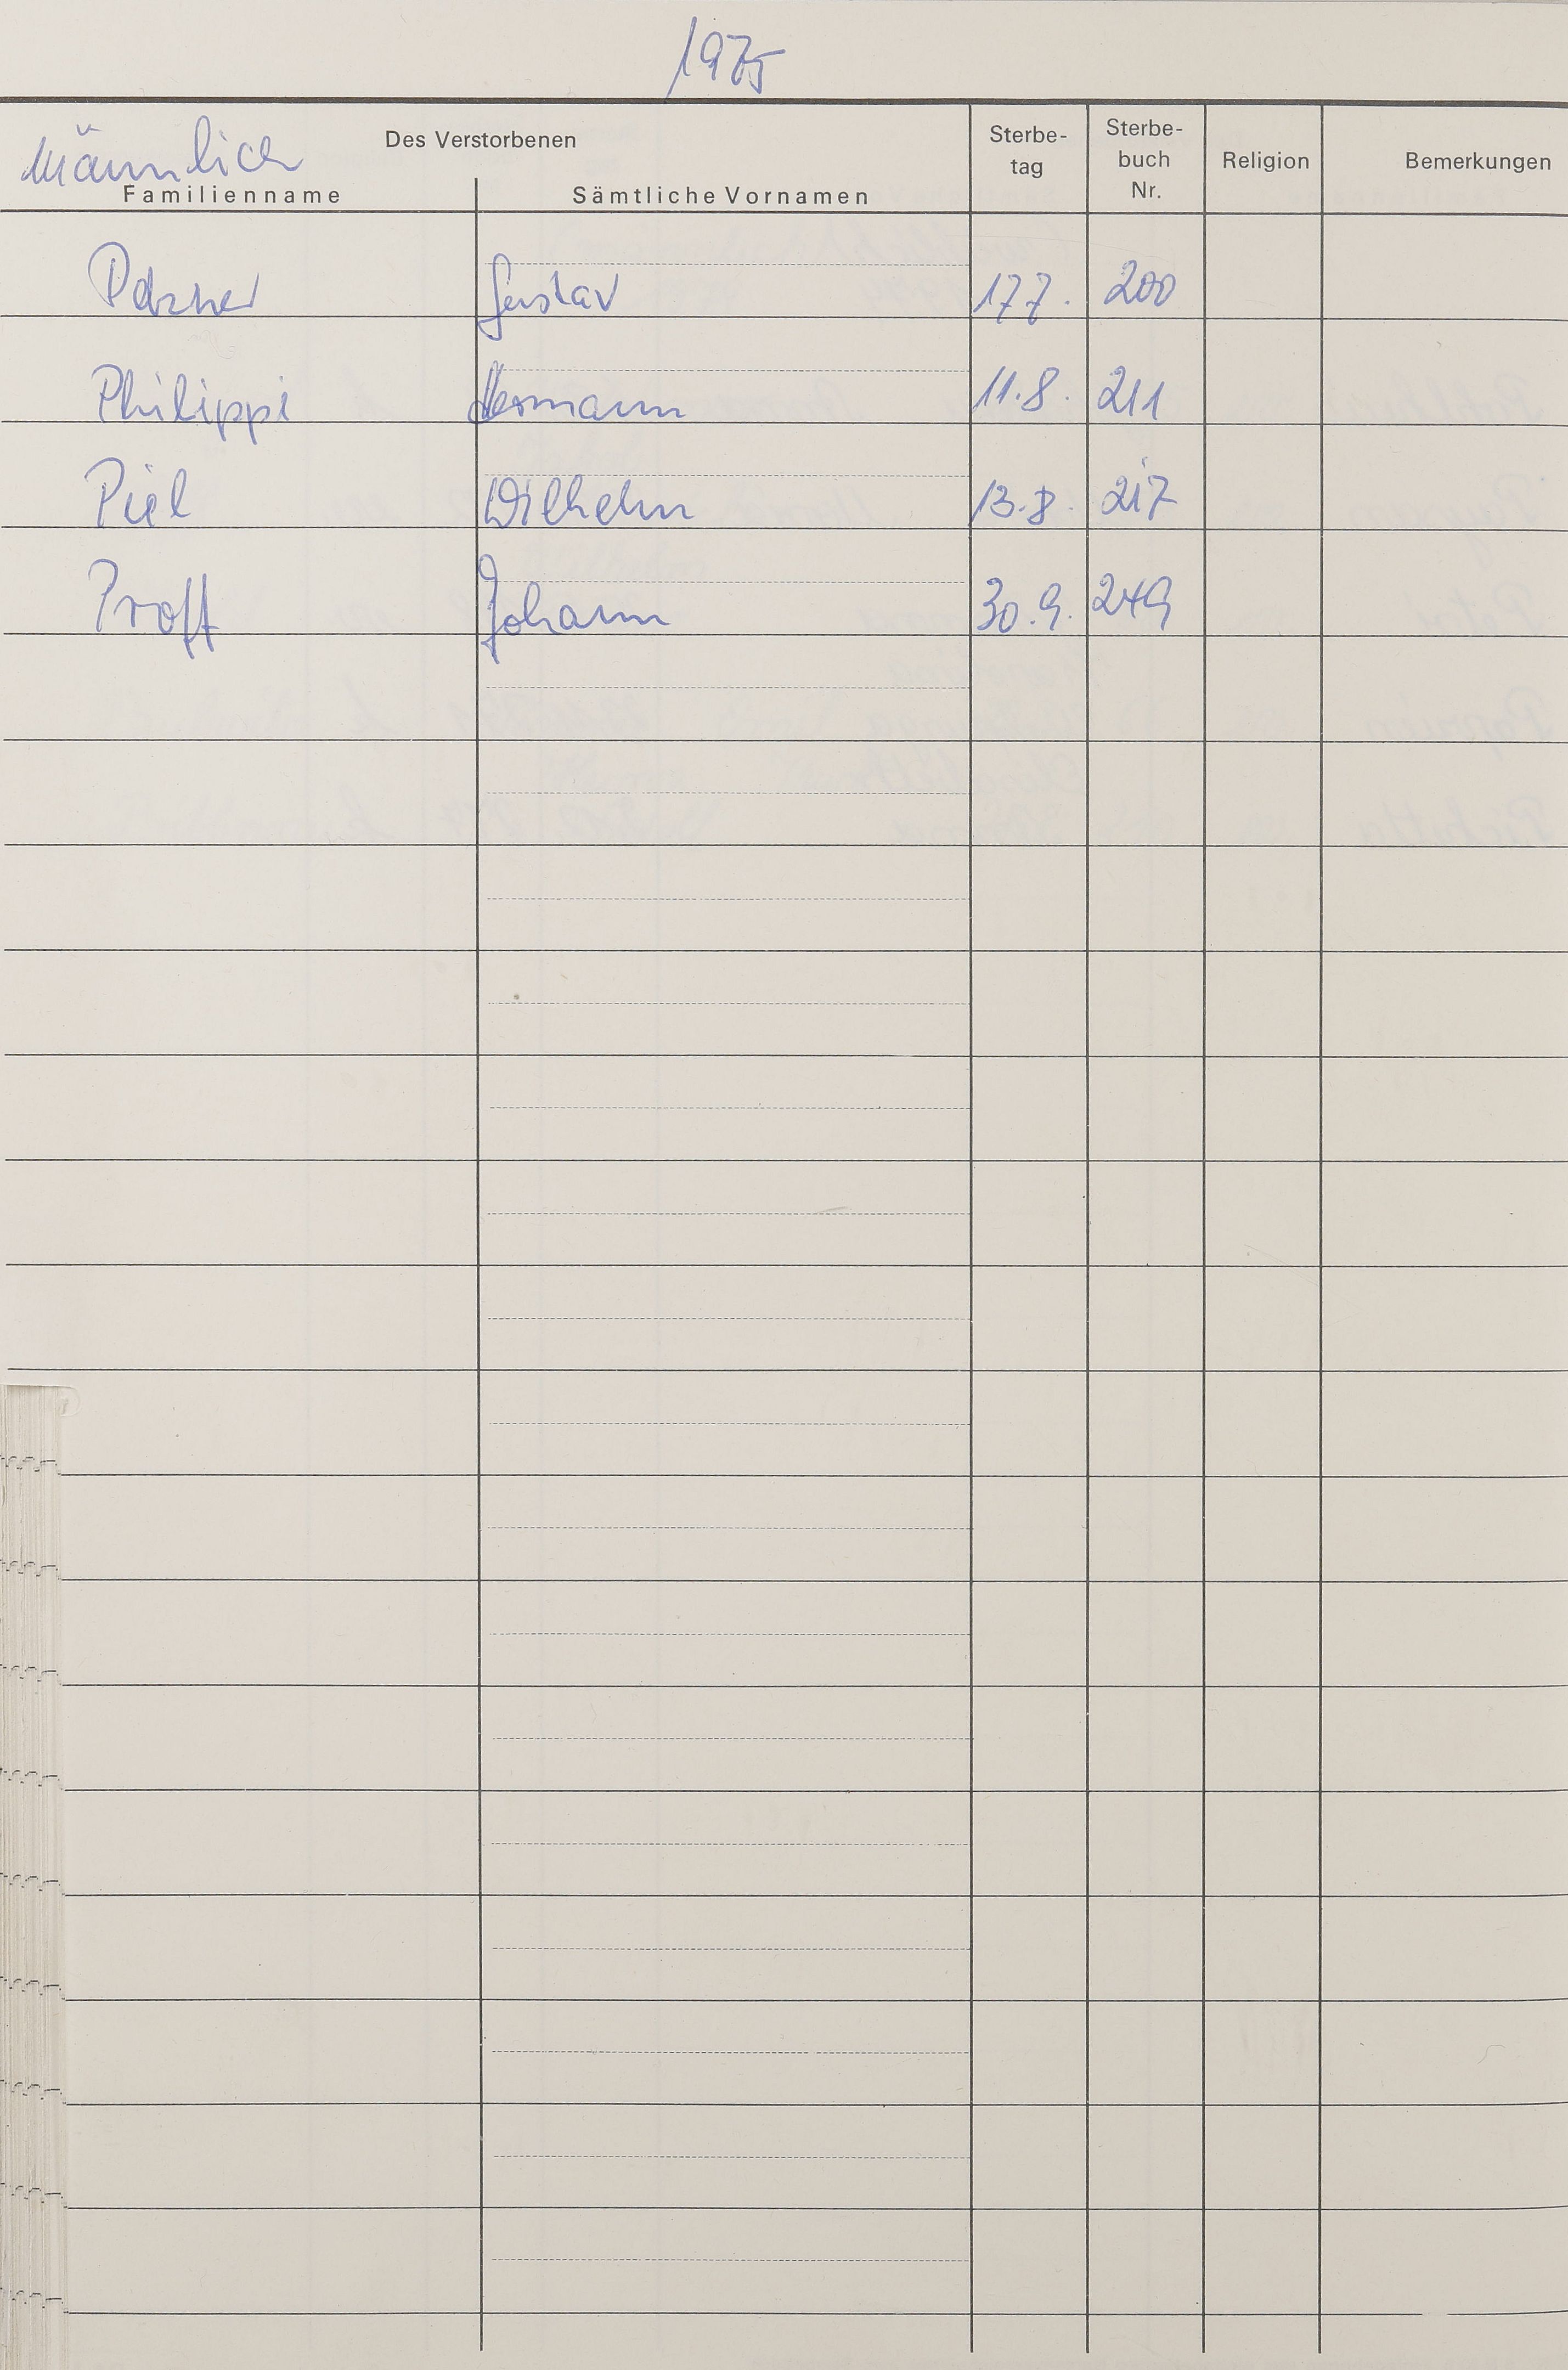 1975
Männlich
Des Verstorbenen
Familienname Sämtliche Vornamen Sterbe-
tag Sterbe-
buch
Nr. Religion Bemerkungen
Gustav 17.7. 200
Philippi Hermann 11.8. 211
Piel Wilhelm 13.8. 217
Proff Johann 30.9. 249